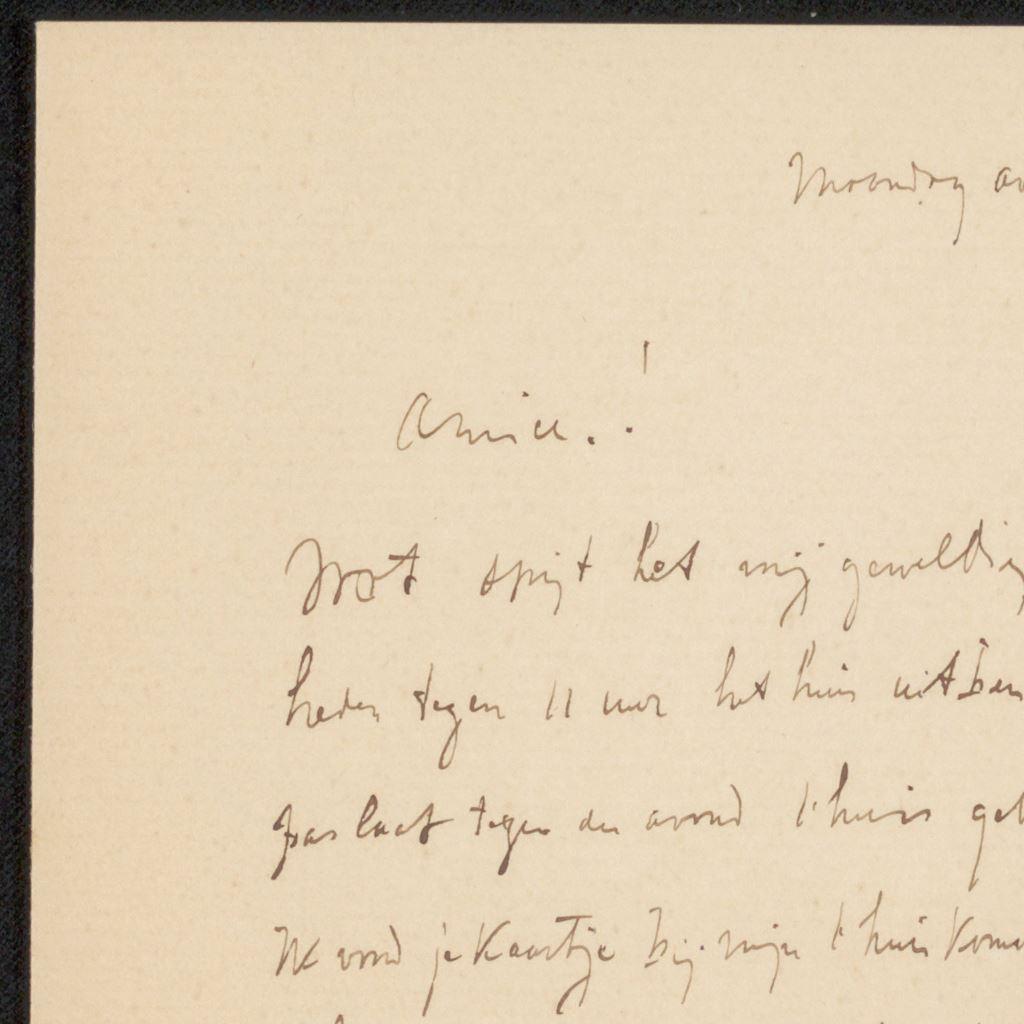 Maandag
Amice.!
Wat spijt het mij geweldig
heden tegen 11 uur het huis uit ben
pas laat tegen den avond t'huis
Ik vond je kaartje bij mijn t'huis kom